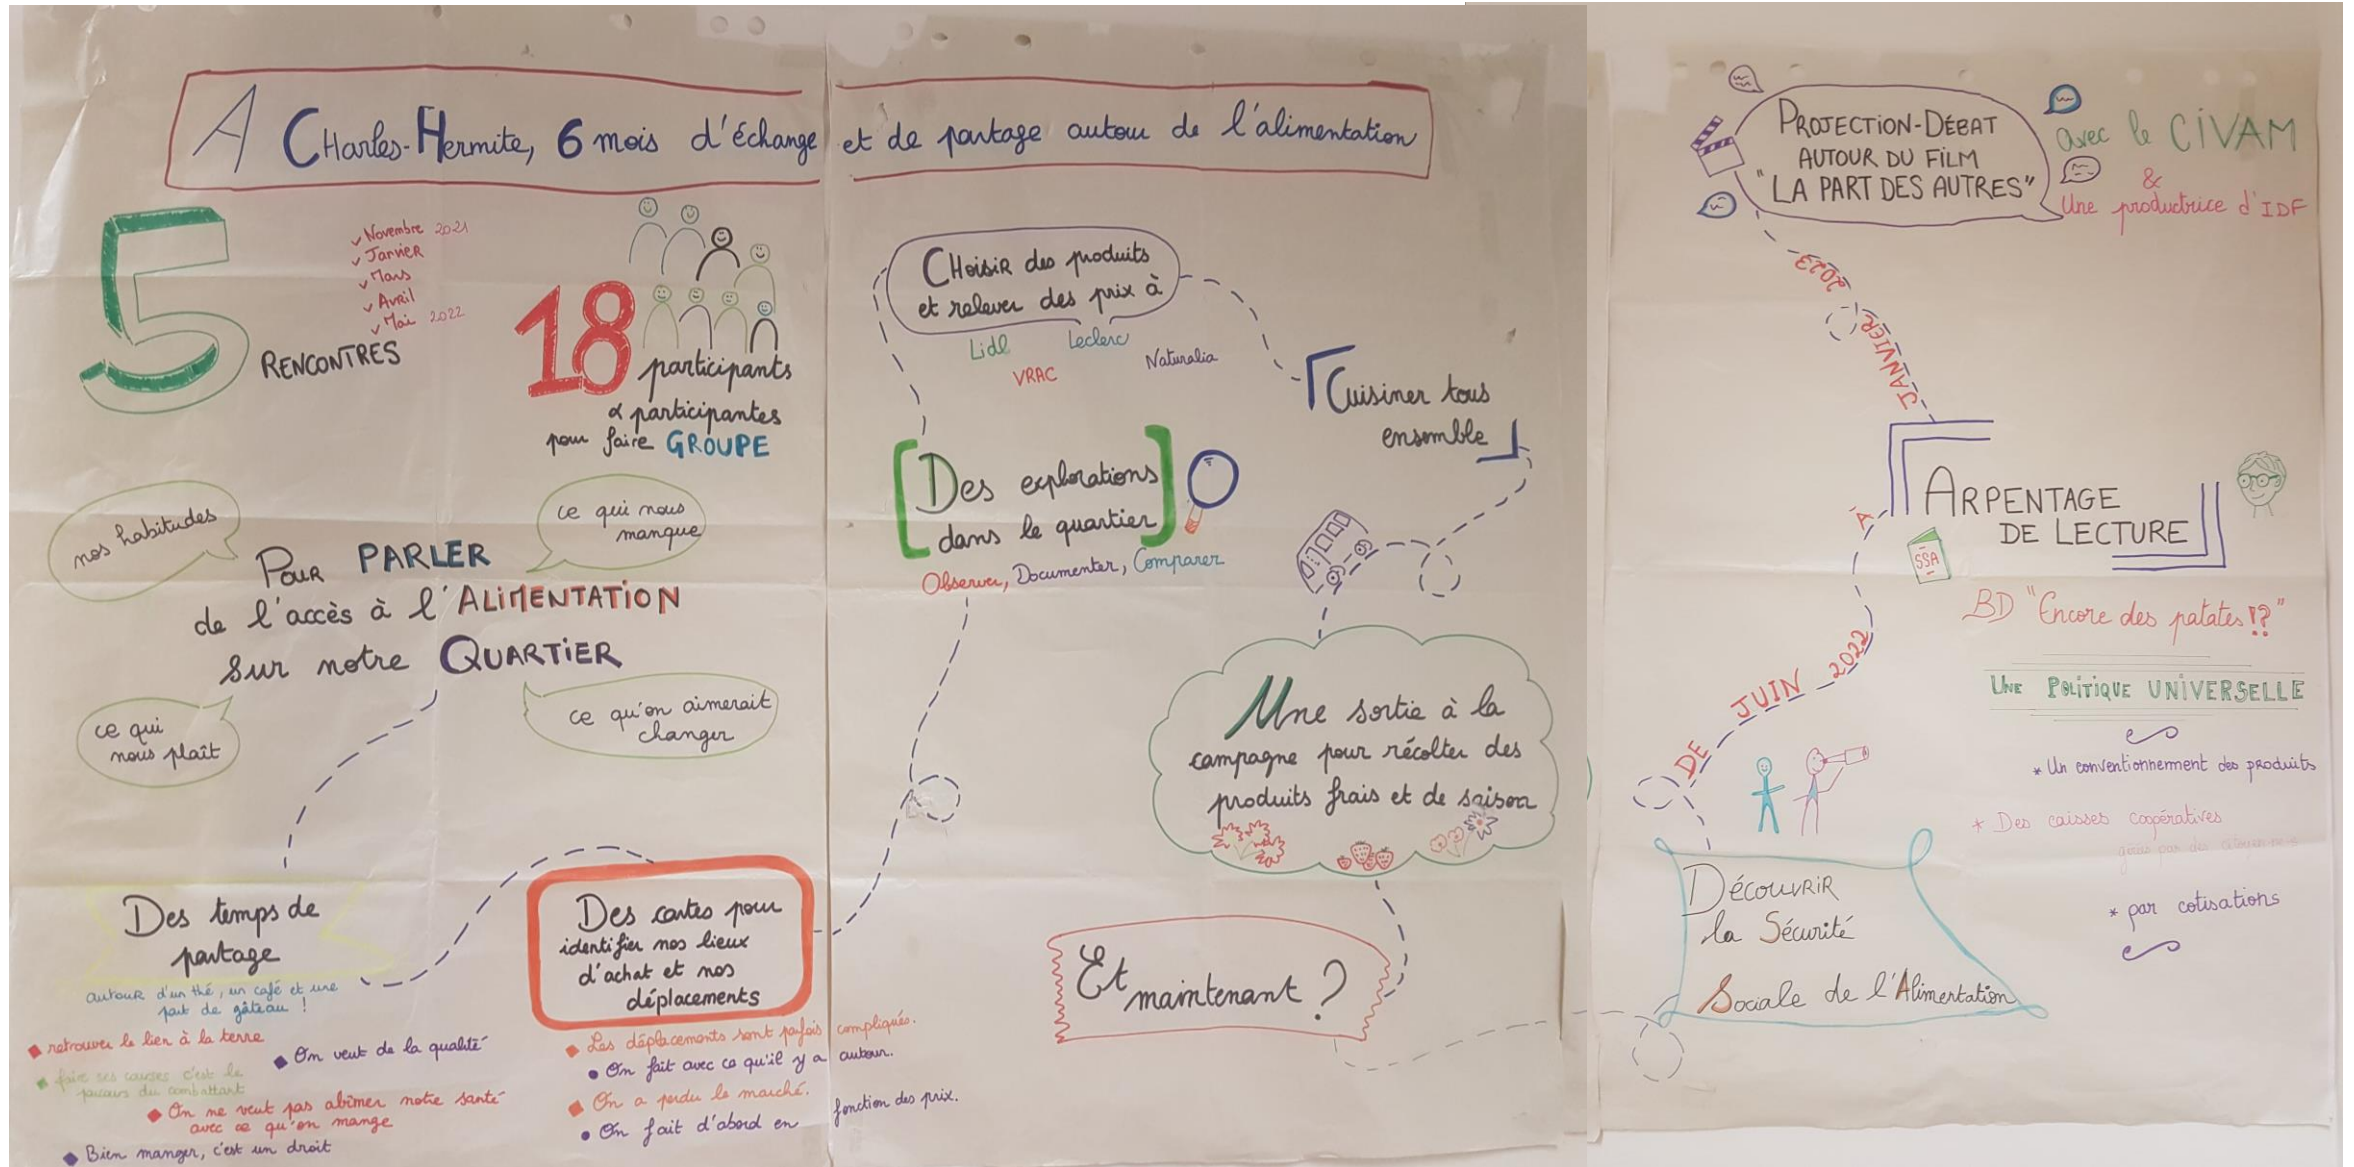 A CHarles-Hermite, 6 mois d'échange et de partage autour de l'alimentation
5
RENCONTRES
Novembre 2021
Janvier
Mars
Avril
Mai 2022
18
participants
& participantes
pour faire GROUPE
nos habitudes
ce qui nous
manque
Pour PARLER
de l'accès à l'ALIMENTATION
sur notre QUARTIER
ce qui
nous plaît
ce qu'on aimerait
changer
Des temps de
partage
autour d'un thé, un café et une
part de gâteau !
retrouver le lien à la terre
On veut de la qualité
faire ses courses c'est le
parcours du combattant
On ne veut pas abîmer notre santé
avec ce qu'on mange
Bien manger, c'est un droit
Des cartes pour
identifier nos lieux
d'achat et nos
déplacements
Les déplacements sont parfois compliqués.
On fait avec ce qu'il y a autour.
On a perdu le marché.
On fait d'abord en fonction des prix.
CHoisir des produits
et relever des prix à
Lidl
Leclerc
VRAC
Naturalia
Cuisiner tous
ensemble
Des explorations
dans le quartier
Observer, Documenter, Comparer
Une sortie à la
campagne pour récolter des
produits frais et de saison
Et
maintenant ?
PROJECTION-DÉBAT
AUTOUR DU FILM
"LA PART DES AUTRES"
avec le CIVAM
&
Une productrice d'IDF
DE JUIN 2022 À JANVIER 2023
ARPENTAGE
DE LECTURE
SSA
BD "Encore des patates !?"
UNE POLITIQUE UNIVERSELLE
* Un conventionnement des produits
* Des caisses coopératives
gérées par des citoyen-ne-s
* par cotisations
DÉCOUVRIR
la Sécurité
Sociale de l'Alimentation